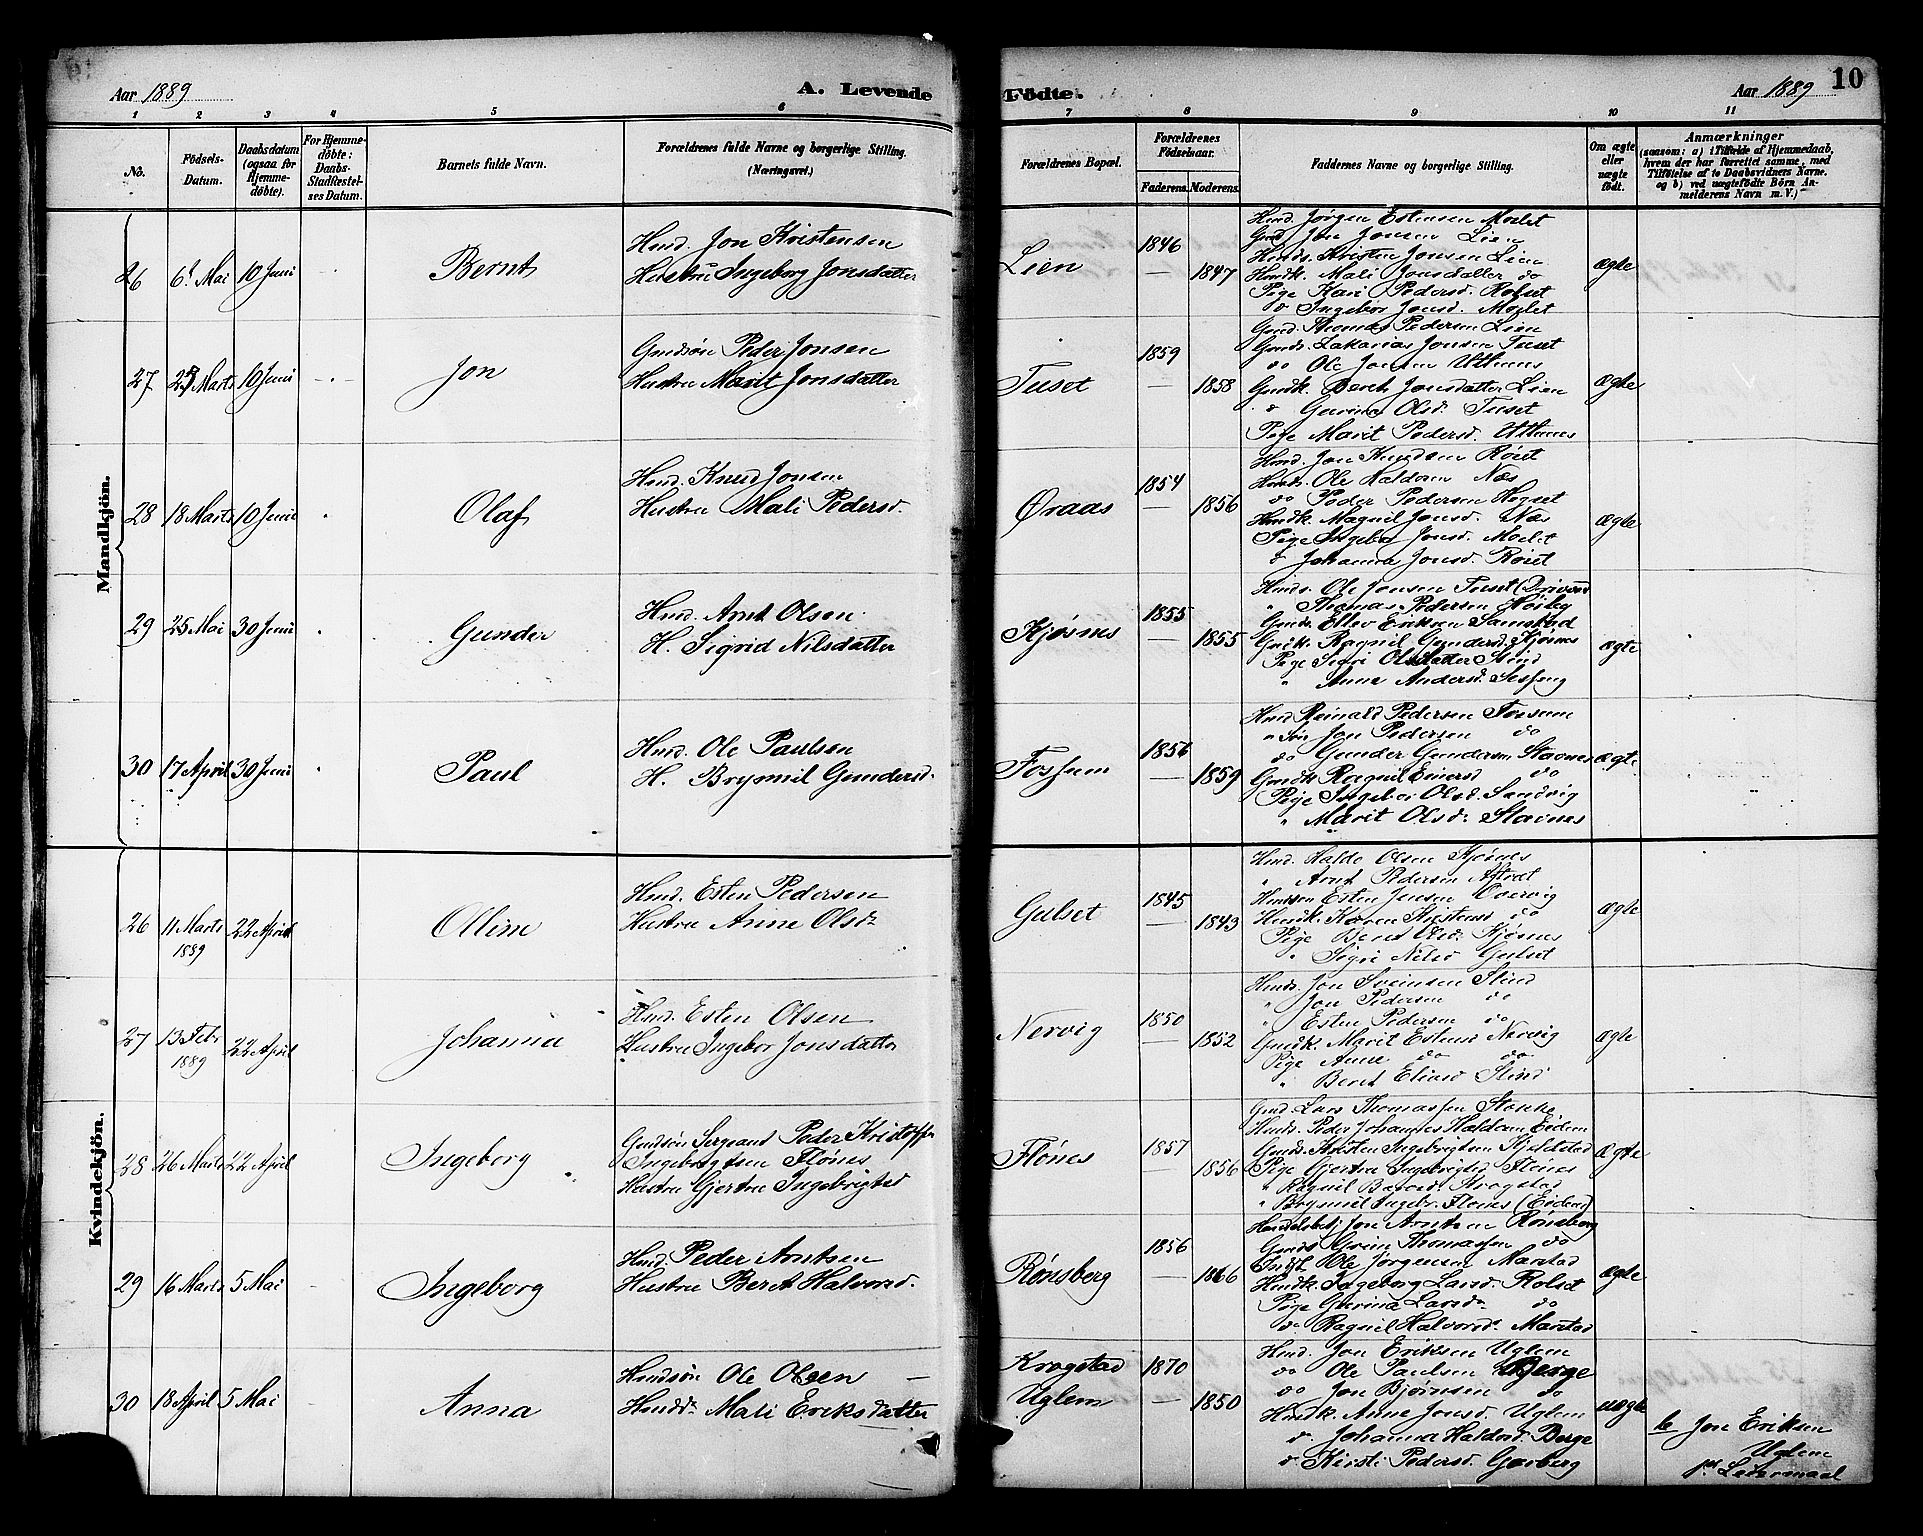 Aar 1889
A. Levende
Födte.
Aar 1889
10
1 2 3 4 5 6 7 8 9 10 11
No.
Födsels-Datum.
Daabsdatum (ogsaa for Hjemmedöbte).
For Hjemmedöbte: Daabs-Stadfæstelses Datum.
Barnets fulde Navn.
Forældrenes fulde Navne og borgerlige Stilling. (Næringsvei.)
Forældrenes Bopæl.
Forældrenes Födselsaar.
Faderens. Moderens.
Faddernes Navne og borgerlige Stilling.
Om ægte eller uægte födt.
Anmærkninger
(saasom: a) i Tilfælde af Hjemmedaab, hvem der har forrettet samme, med Tilföielse af to Daabsvidners Navne. og b) ved uægtefödte Börn Anmelderens Navn m. V.)
Mandkjön.
26 6t Mai 10 Juni Bernt
Hmd. Jon Kristensen
Hustru Ingeborg Jonsdatter
Lien 1846 — 1847
Hmd. Jørgen Estensen Moslet
Gmd Jon Jonsen Lien
Hmds. Kristen Jonsen Lien
Hmdk. Mali Jonsdatter do
Pige Kari Pedersd. Rolset
do Ingebor Jonsd. Moslet
ægte
27 Marts 10 Juni Jon
Gmdsøn Peder Jonsen
Hustru Marit Jonsdatter
Tuset 1859 — 1858
Gmd. Thomas Pedersen Lien
Gmds. Zakarias Jonsen Tuset
do Ole Jonsen Uthuus
Gmdk. Beret Jonsdatter Lien
do Gurina Olsd. Tuset
Pige Marit Pedersd. Uthuus
ægte
28 18 Marts 10 Juni Olaf
Hmd. Knud Jonsen
Hustru Mali Pedersd.
Øraas 1854 — 1856
Hmd. Jon Knudsen Røset
Hmds. Ole Haldosn Næs
do Peder Pedersen Hegset
Hmdk. Magnil Jonsd. Næs
Pige Ingebor Jonsd. Moslet
do Johanna Jonsd. Røset
ægte
29 25 Mai 30 Juni Gunder
Hmd. Arnt Olsen
H. Sigrid Nilsdatter
Kjøsnes 1855 — 1855
Hmds. Ole Jonsen Tuset
" Thomas Pedersen Høiby
Gmds. Ellev Eriksen Samstad
Gmdk. Ragnil Gundersd. Kjøsnes
Pige Sigri Olsdatter Slind
" Anne Andersd. Sesseng
ægte
30 17 April 30 Juni Paul
Hmd. Ole Paulsen
H. Brynnil Gundersd.
Fossum 1856 — 1859
Hmd Reinald Pedersen Fossum
" Søn Jon Pedersen do
do Gunder Gundersen Stavnes
Gmdk. Ragnil Einersd do
Pige Ingebor Olsd. Sandvig
" Marit Olsd. Stavnes
ægte
Kvindekjön.
26 11 Marts 1889 22 April Oline
Hmd. Esten Pedersen
Hustru Anne Olsdr
Gulset 1845 — 1843
Hmd. Haldo Olsen Kjøsnes
" Arnt Pedersen Aftret
Hmdsøn Esten Jensen Overvig
Hmdk. Karen Kristensd do
Pige Beret Olsd. Kjøsnes
" Sigri Nilsd Gulset
ægte
27 13 Febr 1889 22 April Johanna
Hmd. Esten Olsen
Hustru Ingebor Jonsdatter
Nervig 1850 — 1852
Hmds. Jon Sveinsen Slind
" Jon Pedersen do
" Esten Pedersen do
Gmdk. Marit Estensd Nervig
Pige Anne do do
" Beret Eliasd Slind
ægte
28 26 Marts 22 April Ingeborg
Gmdsøn Sergeant Peder Kristoffer
Ingebrigtsen Flønes
Hustru Gjertru Ingebrigtsd
Flønes 1857 — 1856
Gmd. Lars Thomassen Stokke
Hmds. Peder Johannes Haldosn Eidem
Gmds. Kristen Ingebrigtsen Kjelstad
Pige Gjertru Ingebrigtsd Flønes
" Ragnil Krogstad
" Brynnil Ingebr. Flønes (Eidem)
ægte
29 16 Marts 5 Mai Ingeborg
Hmd. Peder Arntsen
Hustru Beret Halvorsd.
Rønsberg 1856 — 1866
Handelsbetj Jon Arntsen Rønsberg
Gmds Thomassen do
Indst. Ole Jørgensen Marstad
Hmdk. Ingeborg Larsd. Rolset
Pige Gurina Larsdr do
do Ragnil Halvorsd. Marstad
ægte
30 18 April 5 Mai Anna
Hmdsøn Ole Olsen —
Hmddr Mali Eriksdatter
Krogstad 1870
Uglem 1850
Hmd. Jon Eriksen Uglem
do Ole Paulsen Berge
do Jon Bjørnsen do
Hmdk. Anne Jonsd. Uglem
do Johanna Haldosd. Berge
do Kirsti Pedersd. Garberg
uægte
b Jon Eriksen
Uglem
1ste Leiermaal